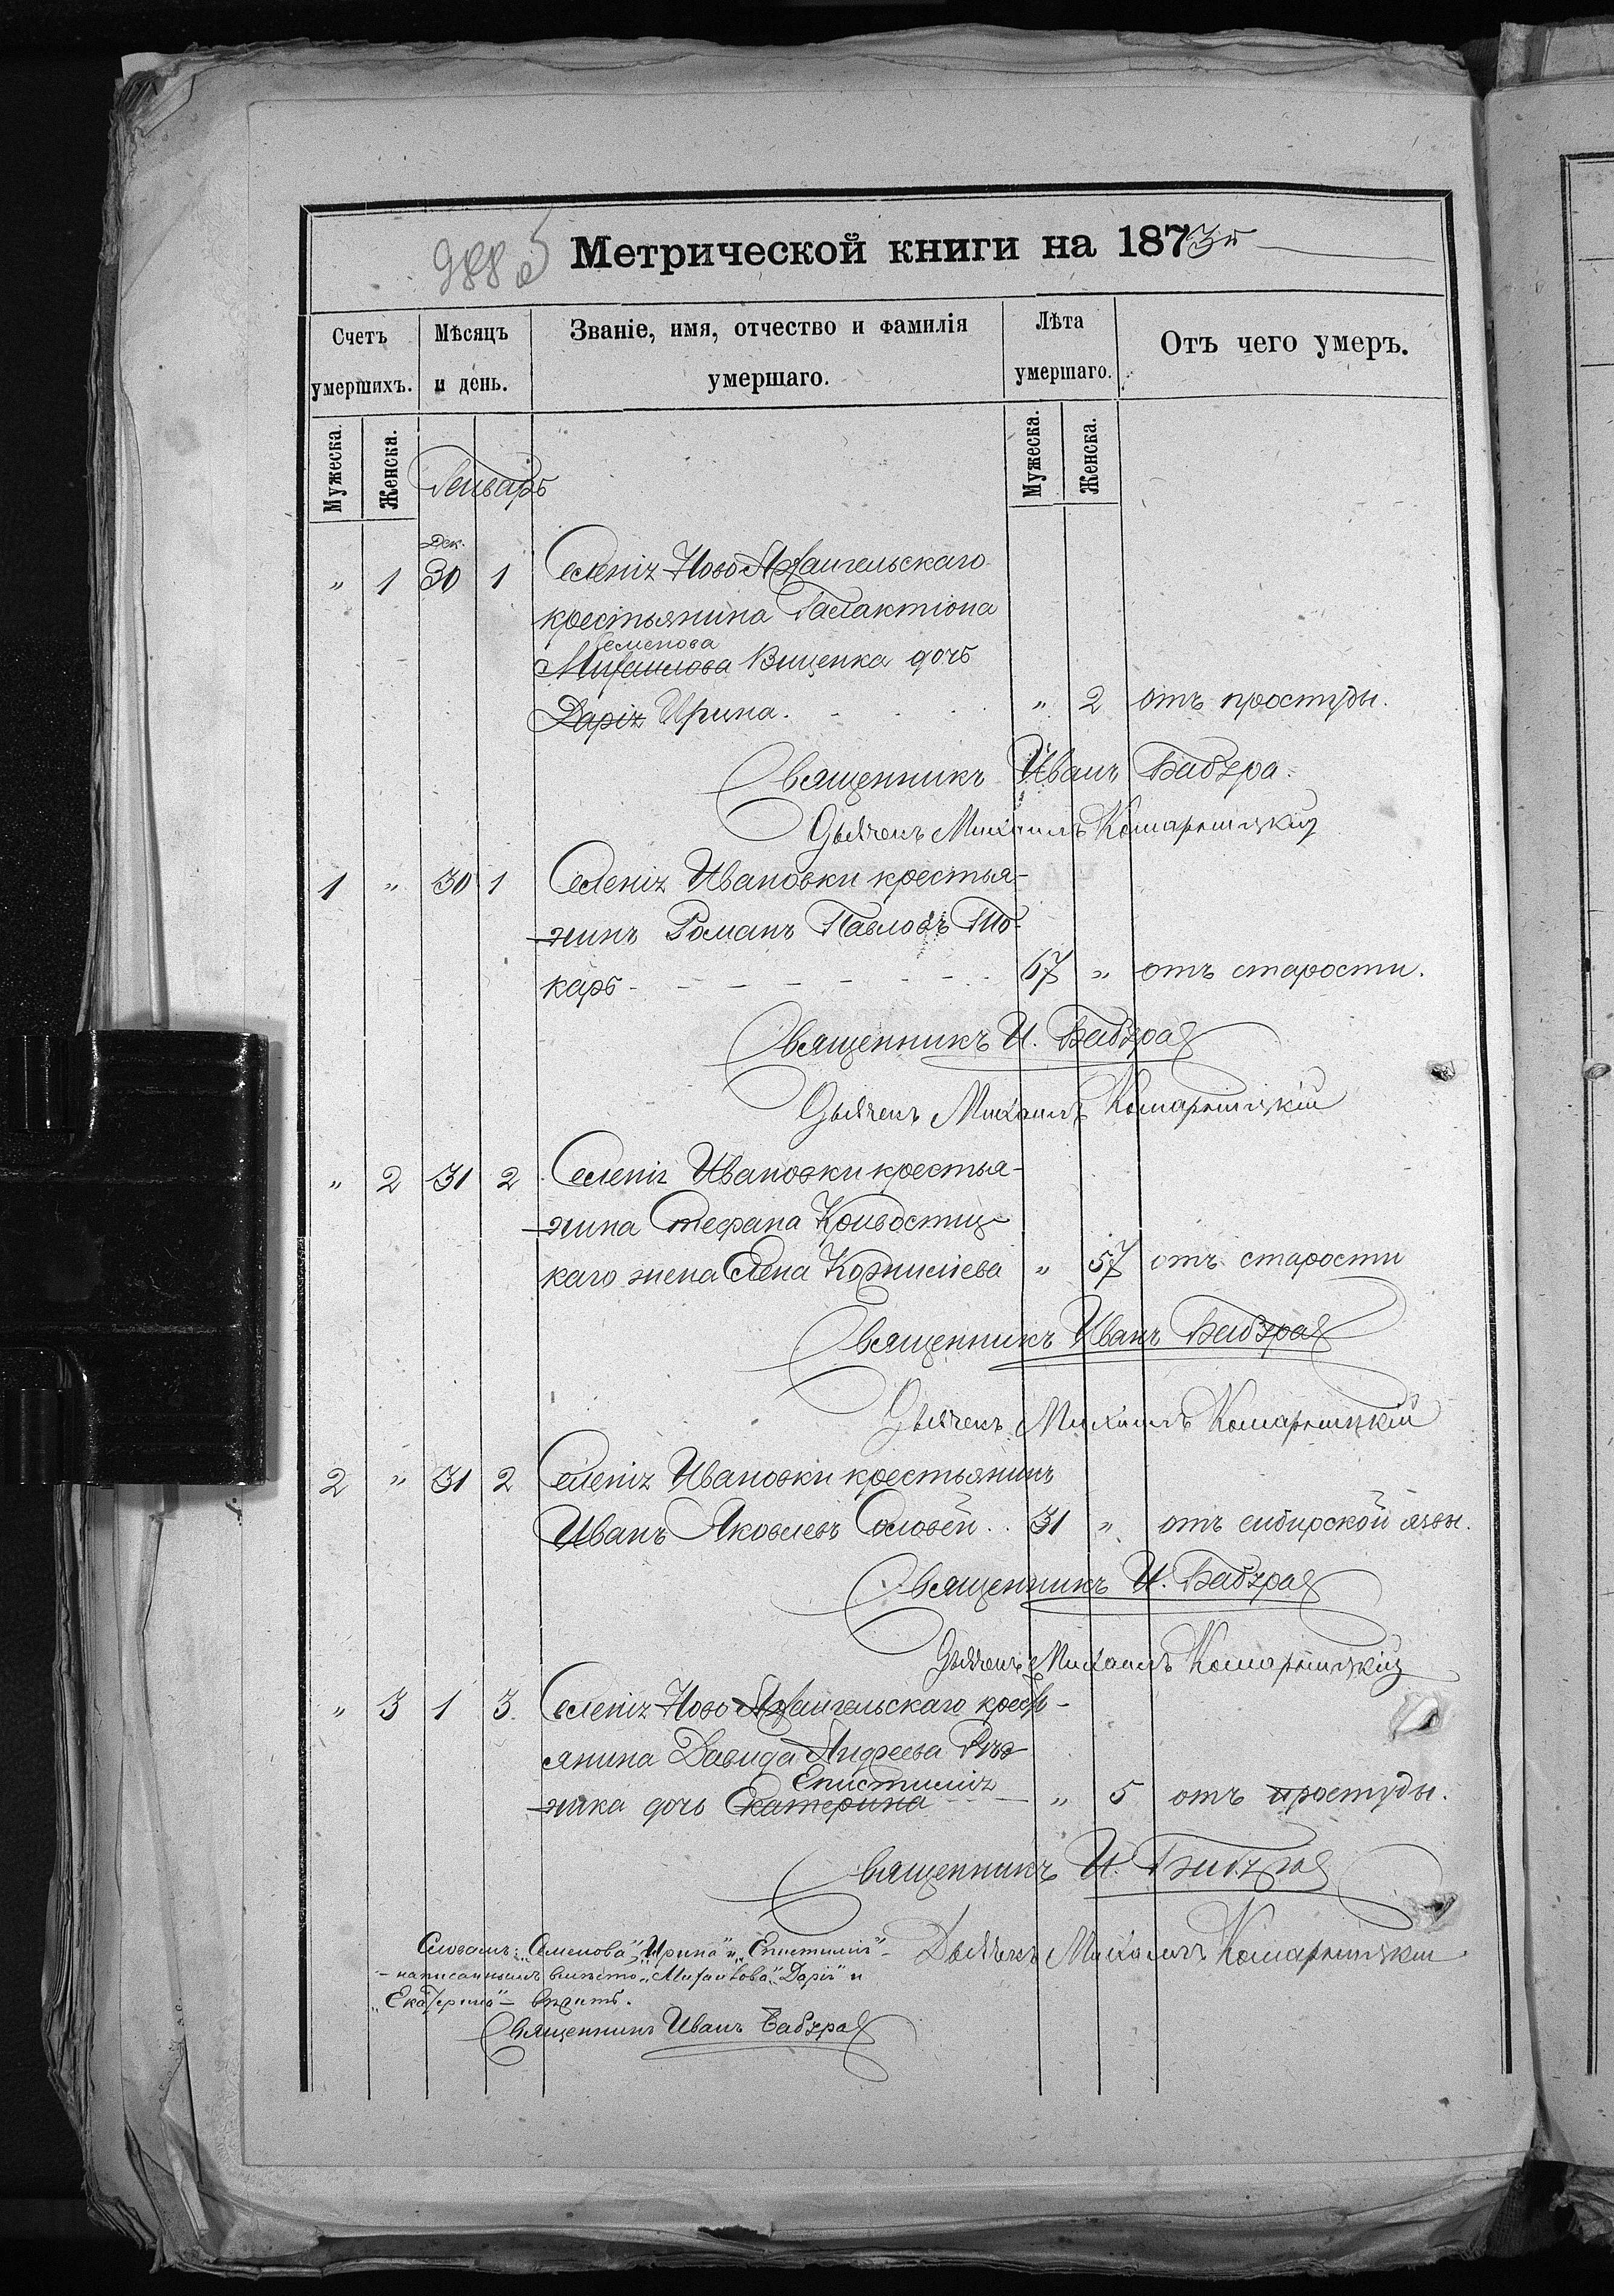 988 об
Метрической книги на 1873й
Счетъ умершихъ. Мѣсяцъ и день. Званіе, имя, отчество и фамилія умершаго. Лѣта умершаго. Отъ чего умеръ.
Мужеска. Женска. Мужеска. Женска.
Генварь
Дек.
" 1 30 1 Селенія Ново Архангельскаго
крестьянина Галактіона
Семенова
Михаилова Виценка дочь
Дарія Ирина. " 2 отъ простуды.
Священникъ Иванъ Бабура.
Дьячекъ Михаилъ Комарницкій
1 " 30 1 Селенія Ивановки крестья-
нинъ Романъ Павловъ То-
карь 67 " отъ старости.
Священникъ И. Бабура
Дьячекъ Михаилъ Комарницкій
" 2 31 2 Селенія Ивановки крестья-
нина Стефана
каго жена Елена Корнилiева " 57 отъ старости
Священникъ Иванъ Бабура
Дьячекъ Михаилъ Комарницкій
2 " 31 2 Селенія Ивановки крестьянинъ
Иванъ Яковлевъ Соловей 31 " отъ сибирской язвы.
Священникъ И. Бабура
Дьячекъ Михаилъ Комарницкій
" 3 1 3 Селенія Ново Архангельскаго кресть-
янина Давида Андреева Рѣз-
Епистимія
ника дочь Екатерина " 5 отъ простуды.
Священникъ И. Бабура
Дьячекъ Михаилъ Комарницкій
Словамъ: „Семенова", „Ирина" и „Епистимія"
написаннымъ вмѣсто „Михаилова", „Дарія" и
„Екатерина" – вѣрить.
Священникъ Иванъ Бабура